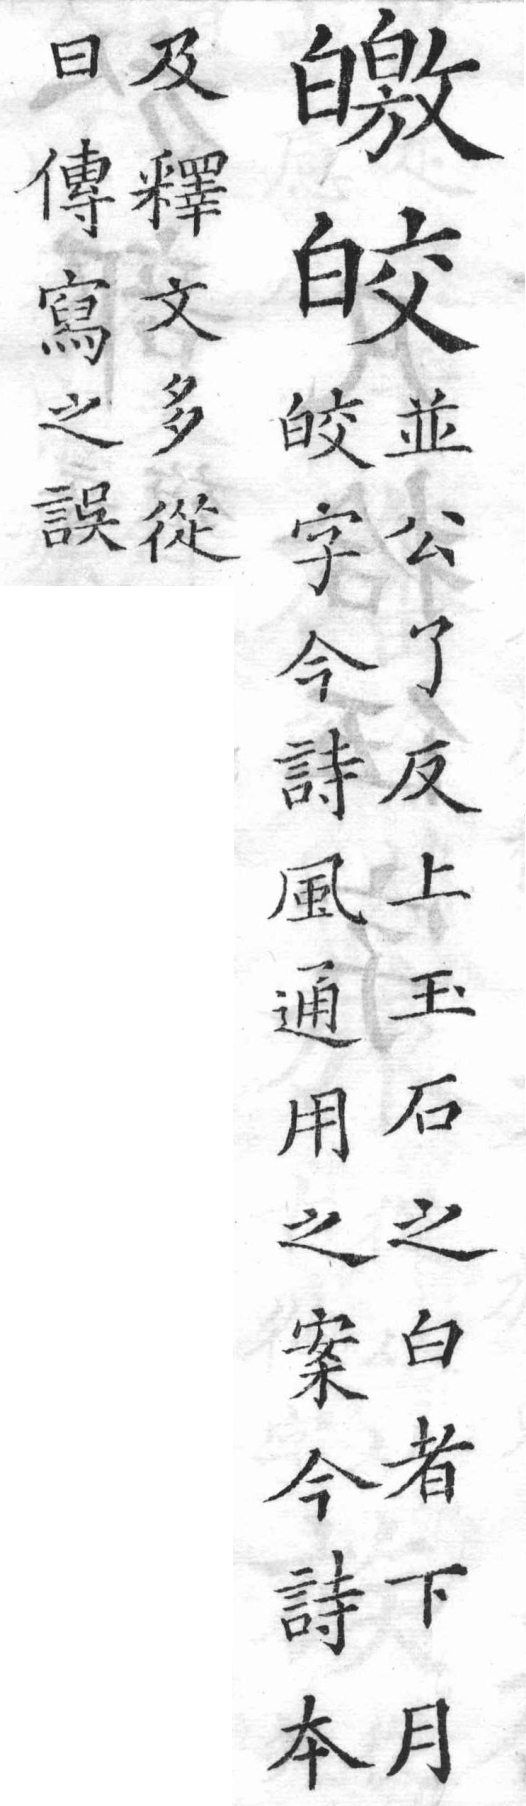 皦皎
並公了反上玉石之白者下月
皎字今詩風通用之案今詩本
及釋文多從
日傳寫之誤